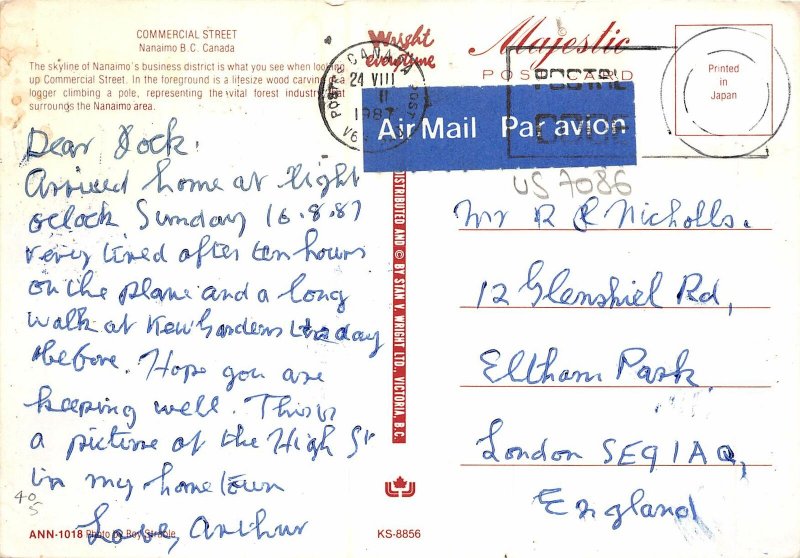 COMMERCIAL STREET
Nanaimo B.C. Canada
The skyline of Nanaimo's business district is what you see when looking
up Commercial Street. In the foreground is a lifesize wood carving
logger climbing a pole, representing the vital forest industry that
surrounds the Nanaimo area.
Wright everytime
Majestic
POST CARD
Printed in Japan
CANADA
24 VIII
11
1987
POST
POST
V6
POSTAL
CODE
Air Mail Par avion
US 7086
Dear Jock.
Arrived home at Eight
oclock Sunday 16.8.87
very tired after ten hours
on the plane and a long
walk at Kew Gardens the day
before. Hope you are
keeping well. This is
a picture of the High St
in my hometown
Love, Arthur
40
5
ANN-1018 Photo by Roy Strable
DISTRIBUTED AND © BY STAN V. WRIGHT LTD., VICTORIA, B.C.
KS-8856
Mr R Nicholls.
12 Glenshiel Rd,
Eltham Park
London SE9 1AQ,
England